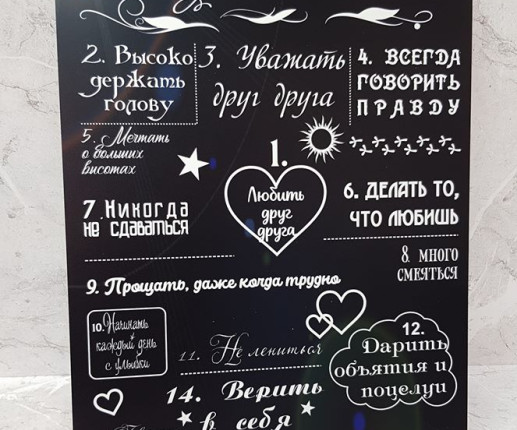 2. Высоко
держать
голову
3. Уважать
друг друга
4. ВСЕГДА
ГОВОРИТЬ
ПРАВДУ
5. Мечтать
о больших
высотах
1.
Любить
друг
друга
6. ДЕЛАТЬ ТО,
ЧТО ЛЮБИШЬ
7. Никогда
не сдаваться
8. МНОГО
СМЕЯТЬСЯ
9. Прощать, даже когда трудно
10. Начинать
каждый день
с улыбки
11. Не лениться
12.
Дарить
объятия и
поцелуи
14. Верить
в себя